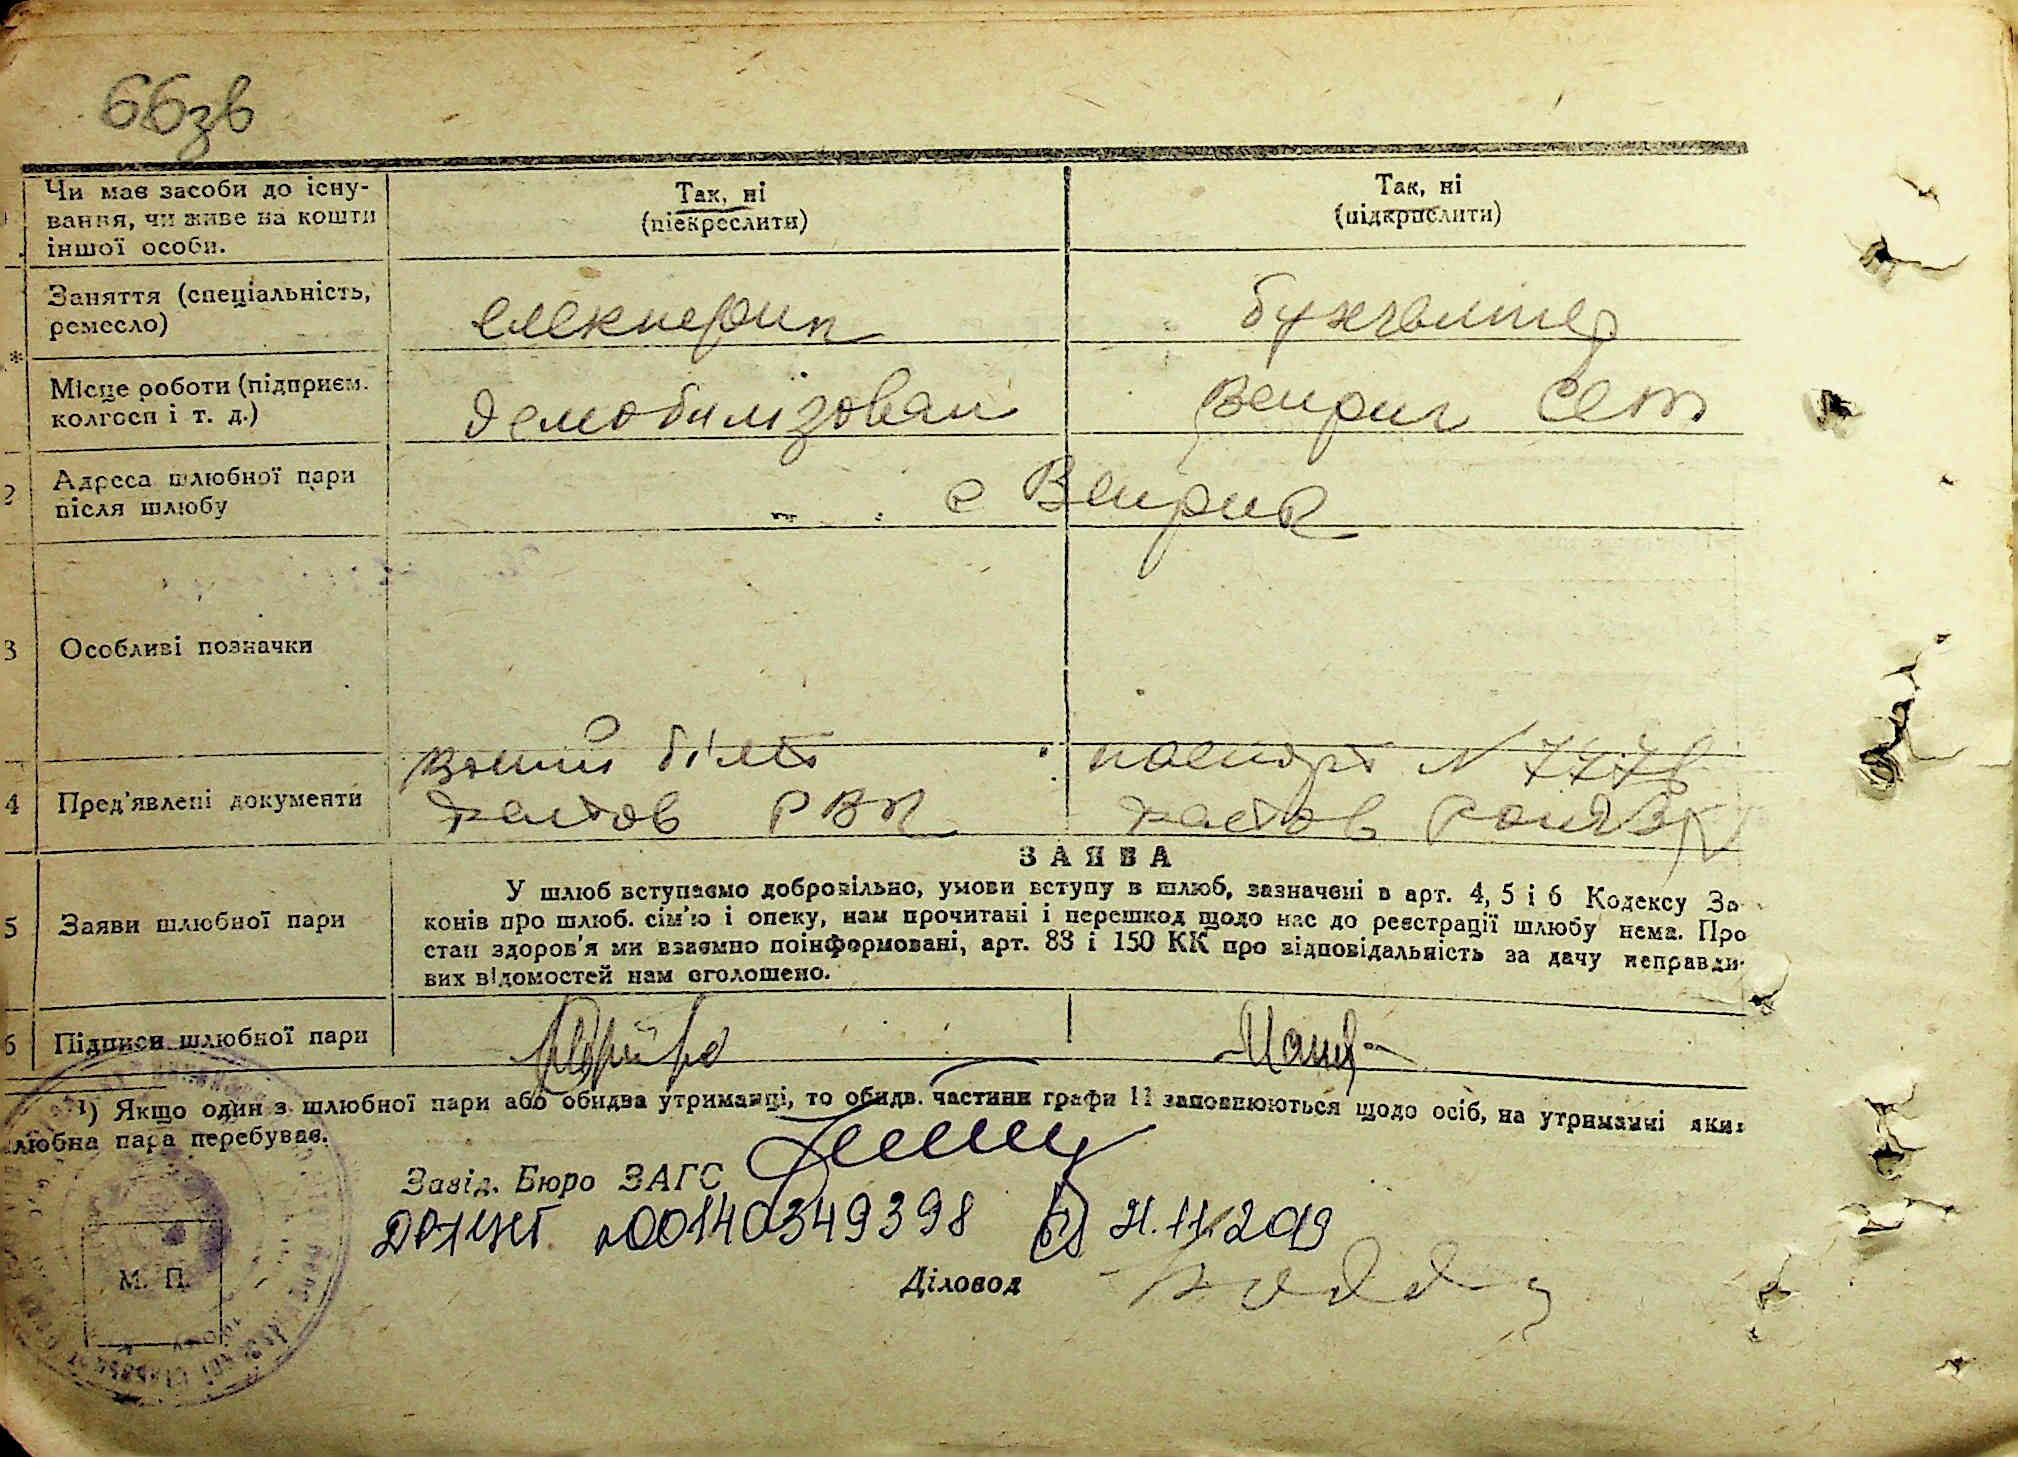 66зв
Чи має засоби до існу-
вання, чи живе на кошти
іншої особи.
Так, ні
(піекреслити)
Так, ні
(підкрислити)
Заняття (спеціальність,
ремесло)
електрик
бухгалтер
*
Місце роботи (підприєм.
колгосп і т. д.)
демобилізован
Веприк
2
Адреса шлюбної пари
після шлюбу
с Веприк
3
Особливі позначки
4
Пред'явлені документи
білет
паспорт N
РВК
5
Заяви шлюбної пари
ЗАЯВА
У шлюб вступаємо добровільно, умови вступу в шлюб, зазначені в арт. 4, 5 і 6 Кодексу За
конів про шлюб. сім'ю і опеку, нам прочитані і перешкод щодо нас до реєстрації шлюбу нема. Про
стан здоров'я ми взаємно поінформовані, арт. 88 і 150 КК про відповідальність за дачу неправди-
вих відомостей нам оголошено.
6
Підписи шлюбної пари
¹) Якщо один з шлюбної пари або обидва утриманці, то обидв. частини графи 11 заповнюються щодо осіб, на утриманні яких
любна пара перебуває.
Завід. Бюро ЗАГС
00140349398 21.11.2019
М. П.
Діловод